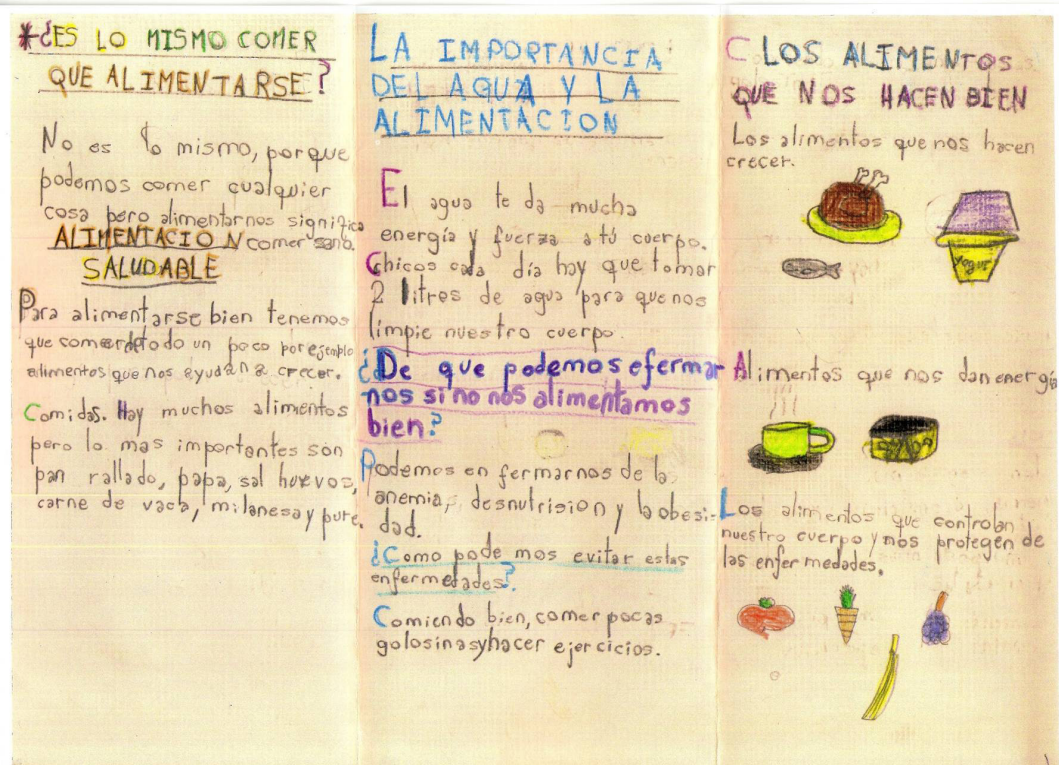 *¿ES LO MISMO COMER
QUE ALIMENTARSE?
No es lo mismo, porque
podemos comer cualquier
cosa pero alimentarnos significa
comer sano.
ALIMENTACION
SALUDABLE
Para alimentarse bien tenemos
que comer de todo un poco por ejemplo
alimentos que nos ayudan a crecer.
Comidas. Hay muchos alimentos
pero lo mas importantes son
pan rallado, papa, sal huevos,
carne de vaca, milanesa y pure.
LA IMPORTANCIA
DEL AGUA Y LA
ALIMENTACION
El agua te da mucha
energía y fuerza a tú cuerpo.
Chicos cada día hay que tomar
2 litros de agua para que nos
limpie nuestro cuerpo.
¿De que podemos efermar
nos si no nos alimentamos
bien?
Podemos en fermarnos de la
anemia, desnutrision y la obesi-
dad.
¿Como pode mos evitar estas
enfermedades?
Comiendo bien, comer pocas
golosinas y hacer ejercicios.
C LOS ALIMENTOS
QUE NOS HACEN BIEN
Los alimentos que nos hacen
crecer.
Yogur
Alimentos que nos dan energía
Los alimentos que controlan
nuestro cuerpo y nos protegen de
las enfer medades.